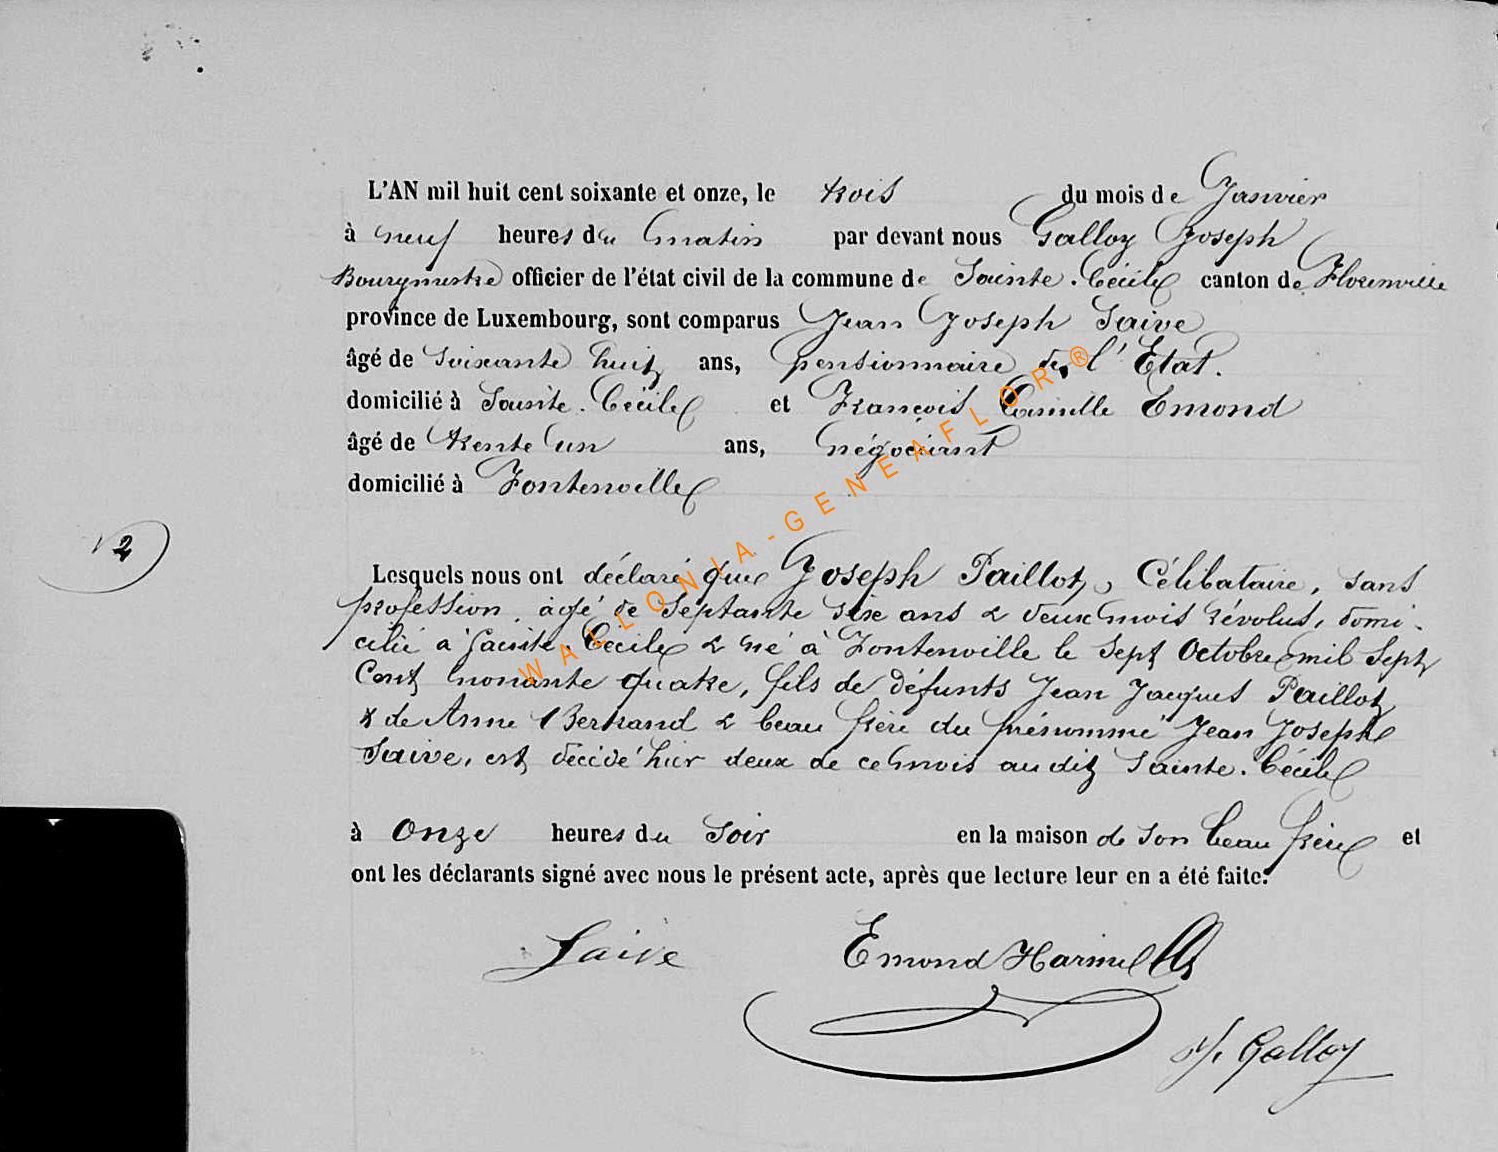 L'AN mil huit cent soixante et onze, le trois du mois de Janvier
à neuf heures du matin par devant nous Galloy Joseph
Bourgmestre officier de l'état civil de la commune de Sainte-Cécile canton de Florenville
province de Luxembourg, sont comparus Jean Joseph Saive
âgé de soixante huit ans, pensionnaire de l'Etat.
domicilié à Sainte-Cécile et François Camille Emond
âgé de trente un ans, négociant
domicilié à Fontenoille
2
Lesquels nous ont déclaré que Joseph Paillot, Célibataire, sans
profession, âgé de septante six ans & deux mois révolus, domi-
cilié à Sainte-Cécile & né à Fontenoille le sept Octobre mil sept
Cent nonante quatre, fils de défunts Jean Jacques Paillot
& de Anne Bertrand & beau frère du prénommé Jean Joseph
Saive, est décédé hier deux de ce mois au dit Sainte-Cécile
à Onze heures du Soir en la maison de son beau frère et
ont les déclarants signé avec nous le présent acte, après que lecture leur en a été faite.
Saive Emond
J. Galloy
WALLONIA-GENEAFLOR®